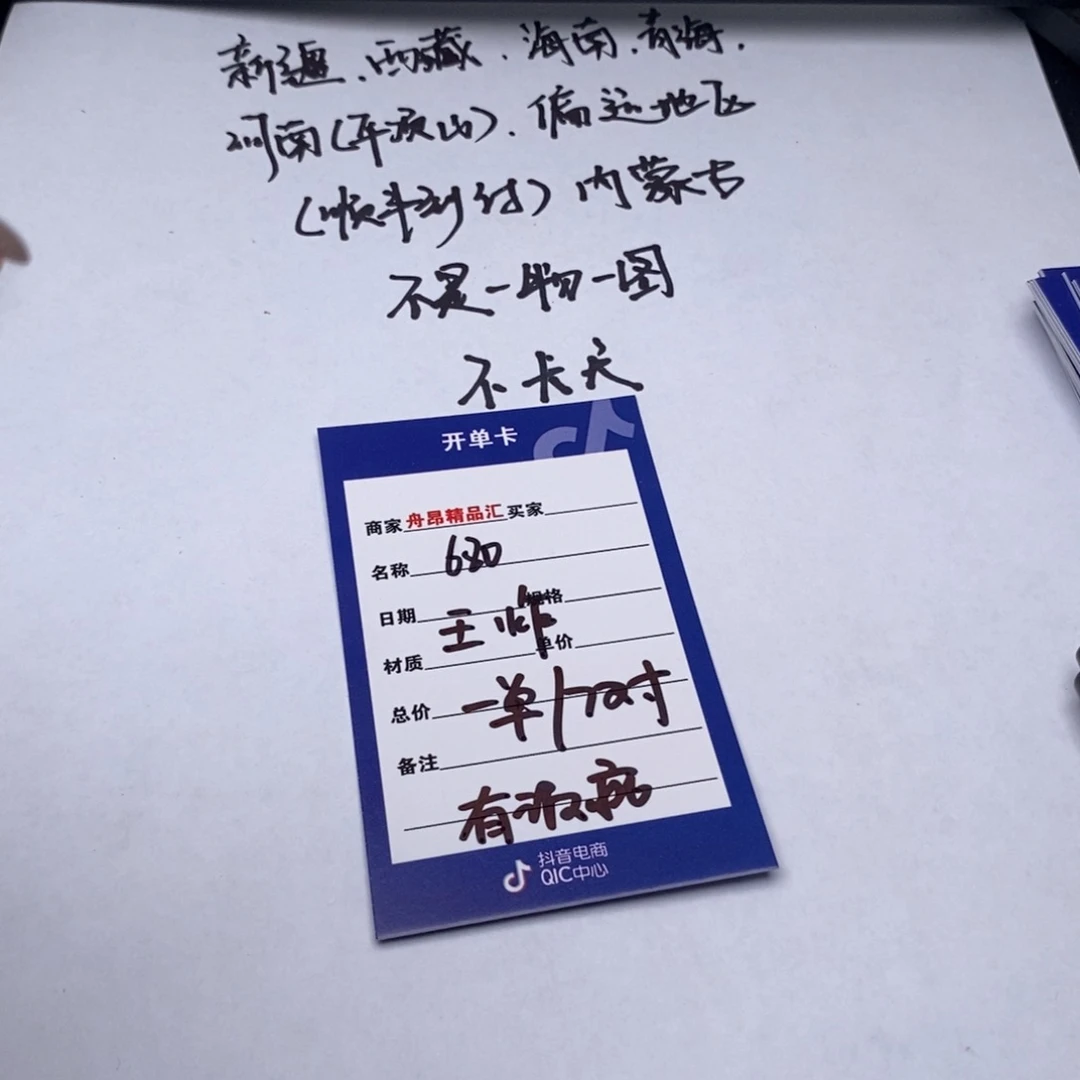 新疆、西藏、海南、青海、
河南（平顶山）、偏远地区
（顺丰到付）内蒙古
不是一物一图
不卡天
开单卡
商家 舟昂精品汇 买家
名称 680
日期 规格
王炸
材质 单价
总价 一单/1对
备注
有瑕疵
抖音电商
QIC中心